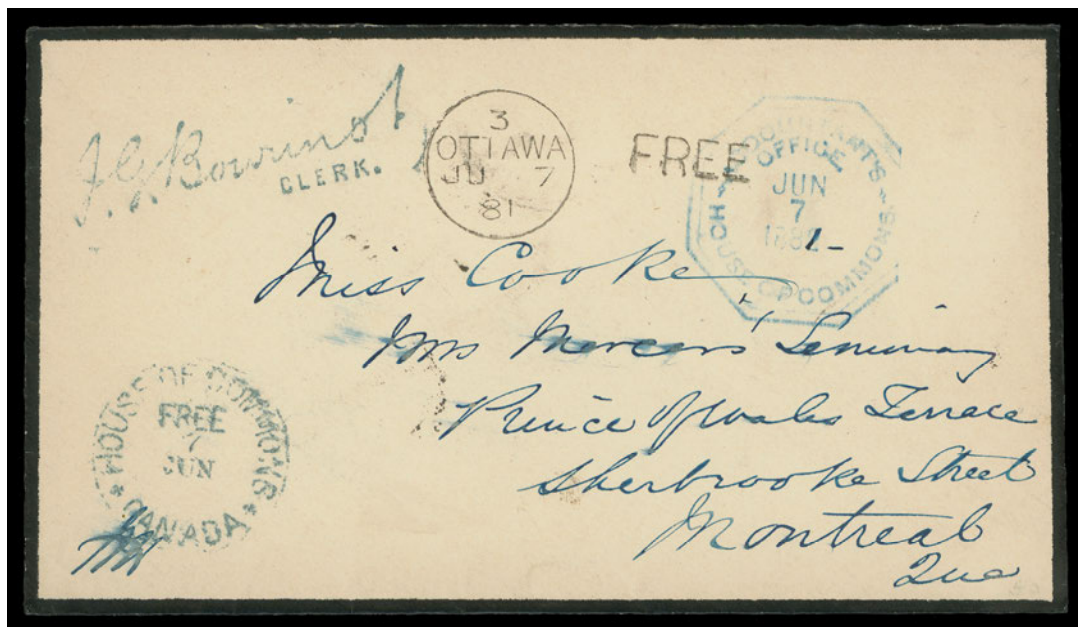 J. G. Bourinot
CLERK.
3
OTTAWA
JU 7
81
FREE
ACCOUNTANT'S
OFFICE
JUN
7
1881
HOUSE OF COMMONS
Miss Cooke,
Mrs Mercer's Seminary
Prince of Wales Terrace
Sherbrooke Street
Montreal
Que
HOUSE OF COMMONS
FREE
7
JUN
CANADA